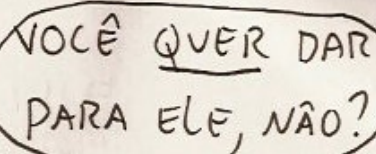 VOCÊ QUER DAR
PARA ELE, NÃO?